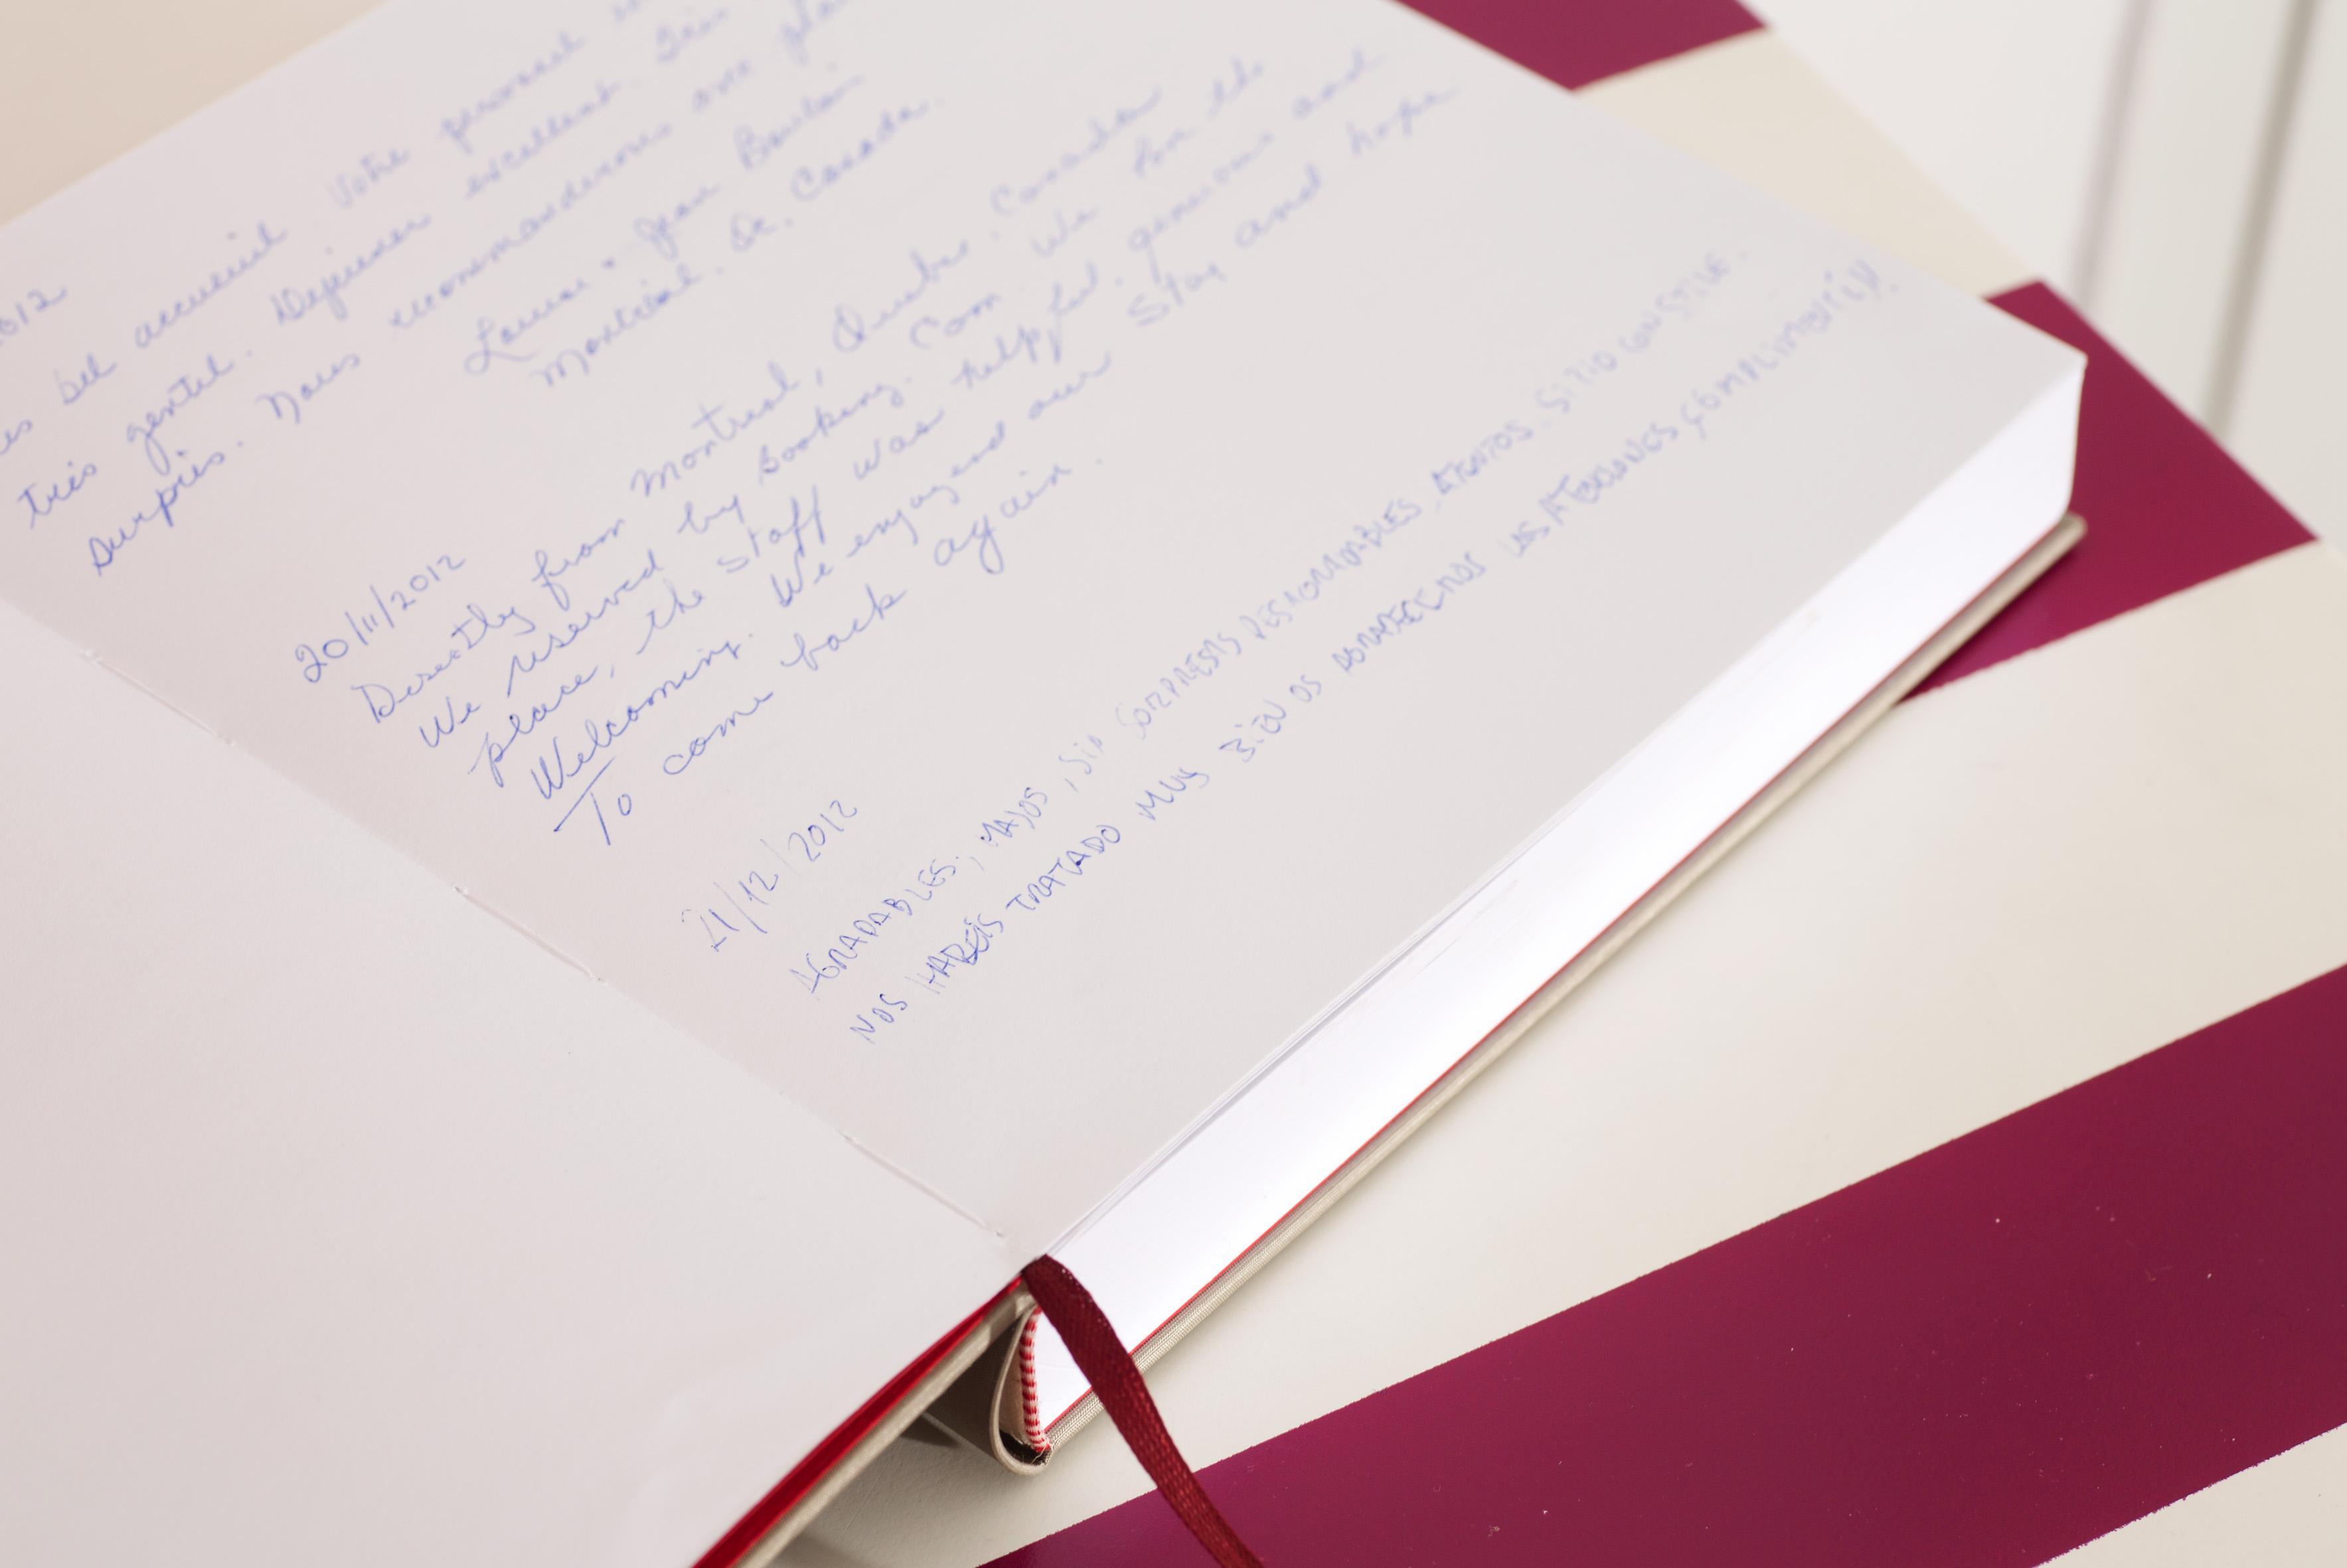 2012
bel accueil. Votre personel
très gentil. Dejeuner excellent. Très
surpris. Nous recommanderons avec
Louise + Jean
Montréal. Qc. Canada.
20/11/2012
Directly from Montreal, Quebec. Canada
We reserved by Booking. Com We for the
place, the staff was helpful, generous and
Welcoming. We enjoyed our stay and hope
To come back again.
21/12/2012
AGRADABLES, MAJOS, SIN SORPRESAS DESAGRADABLES, ATENTOS. SITIO CON STILE.
NOS HABEIS TRATADO MUY BIEN OS AGRADECEMOS LAS ATENCIONES Y COMPLIMENTI!!